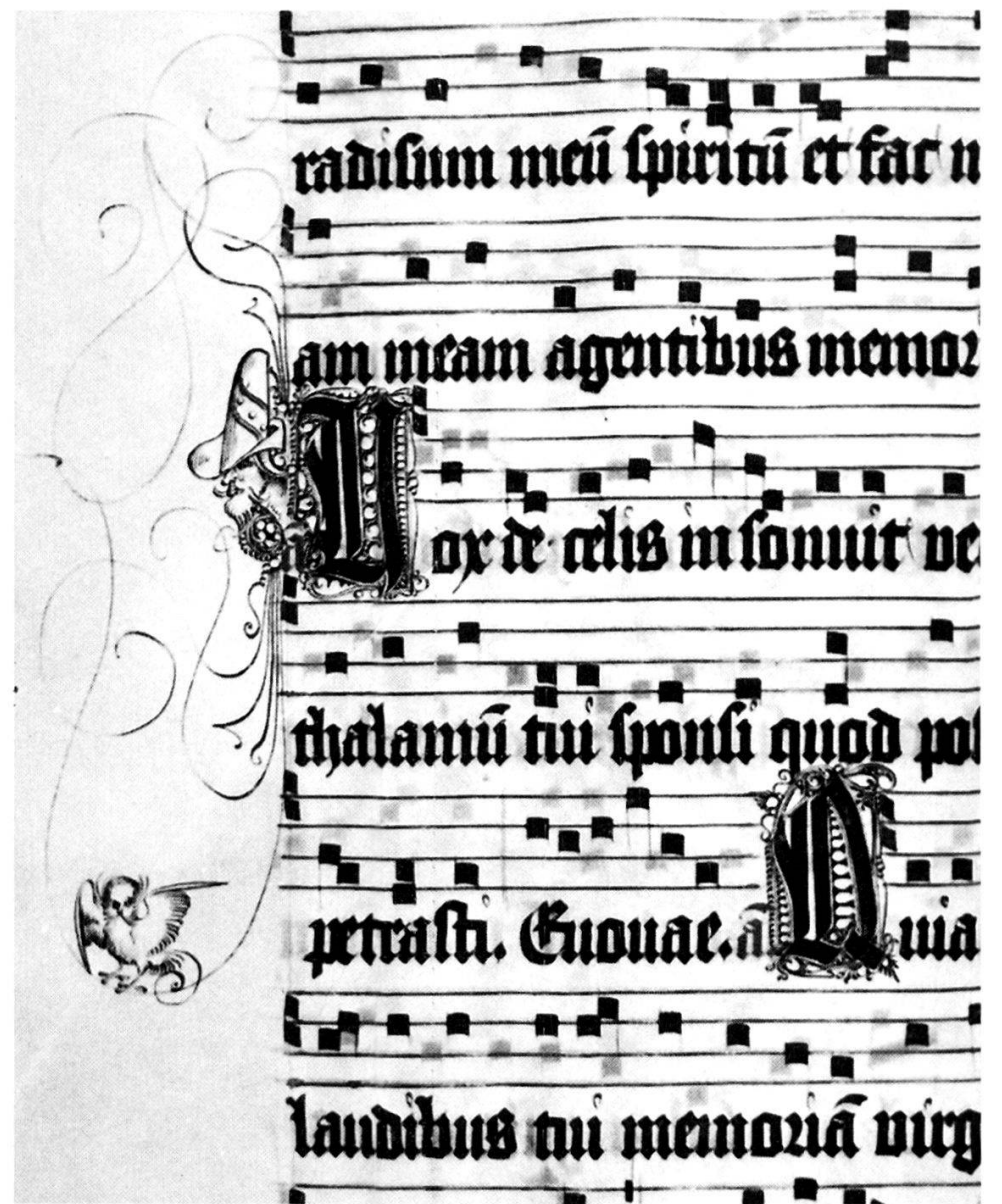 radisum meū spiritū et fac
am meam agentibus memor
Vox de celis insonuit ve
thalamū tui sponsi quod pos
petrasti. Euouae. ā Quia
laudibus tui memoriā virg